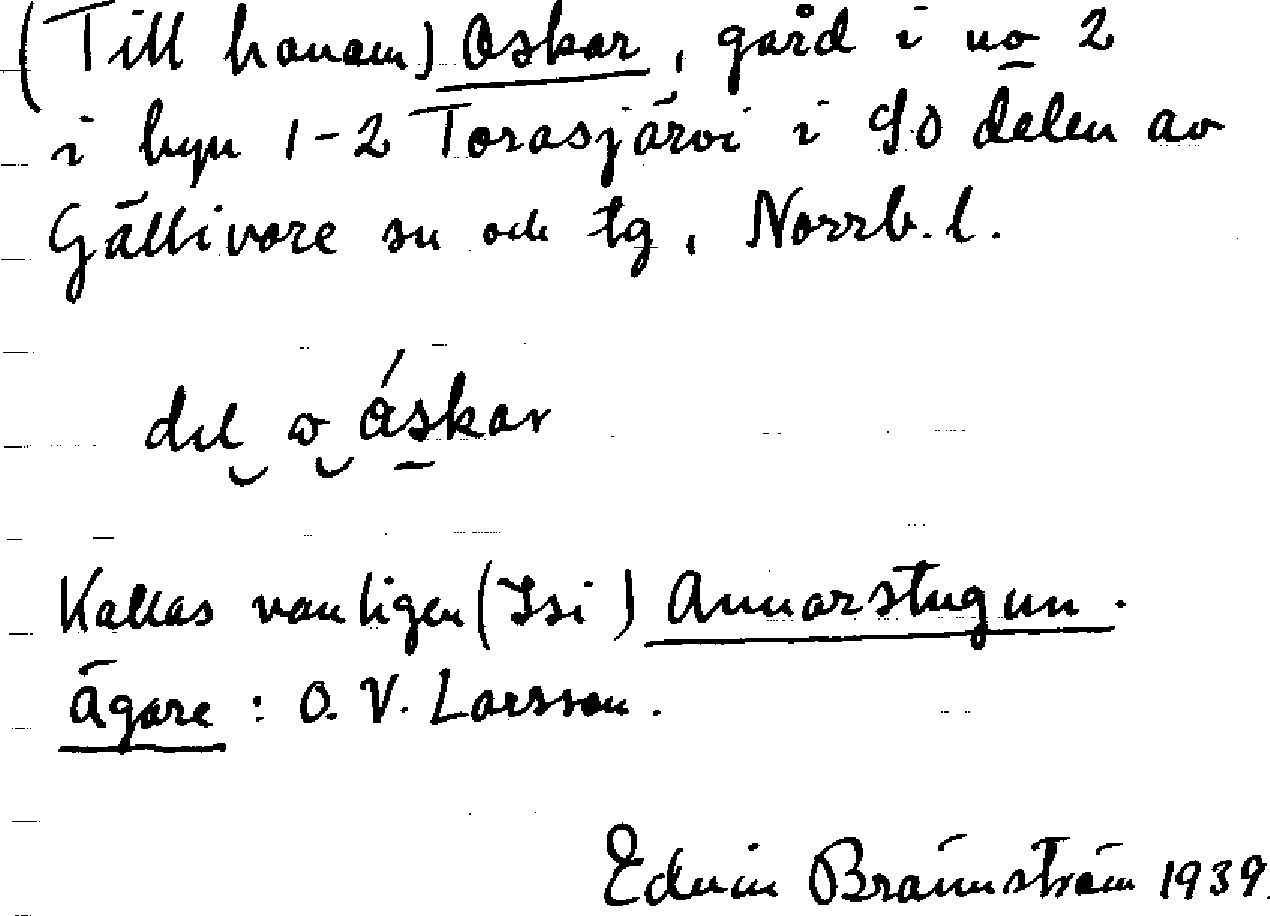 (Till honom) Oskar, gård i no 2
i byn 1-2 Torasjärvi i SO delen av
Gällivare sn och tg, Norrb. l.
áskar
Kallas vanligen (Isi) Annarstugun.
Ägare: O. V. Larsson.
Edvin Brännström 1939.